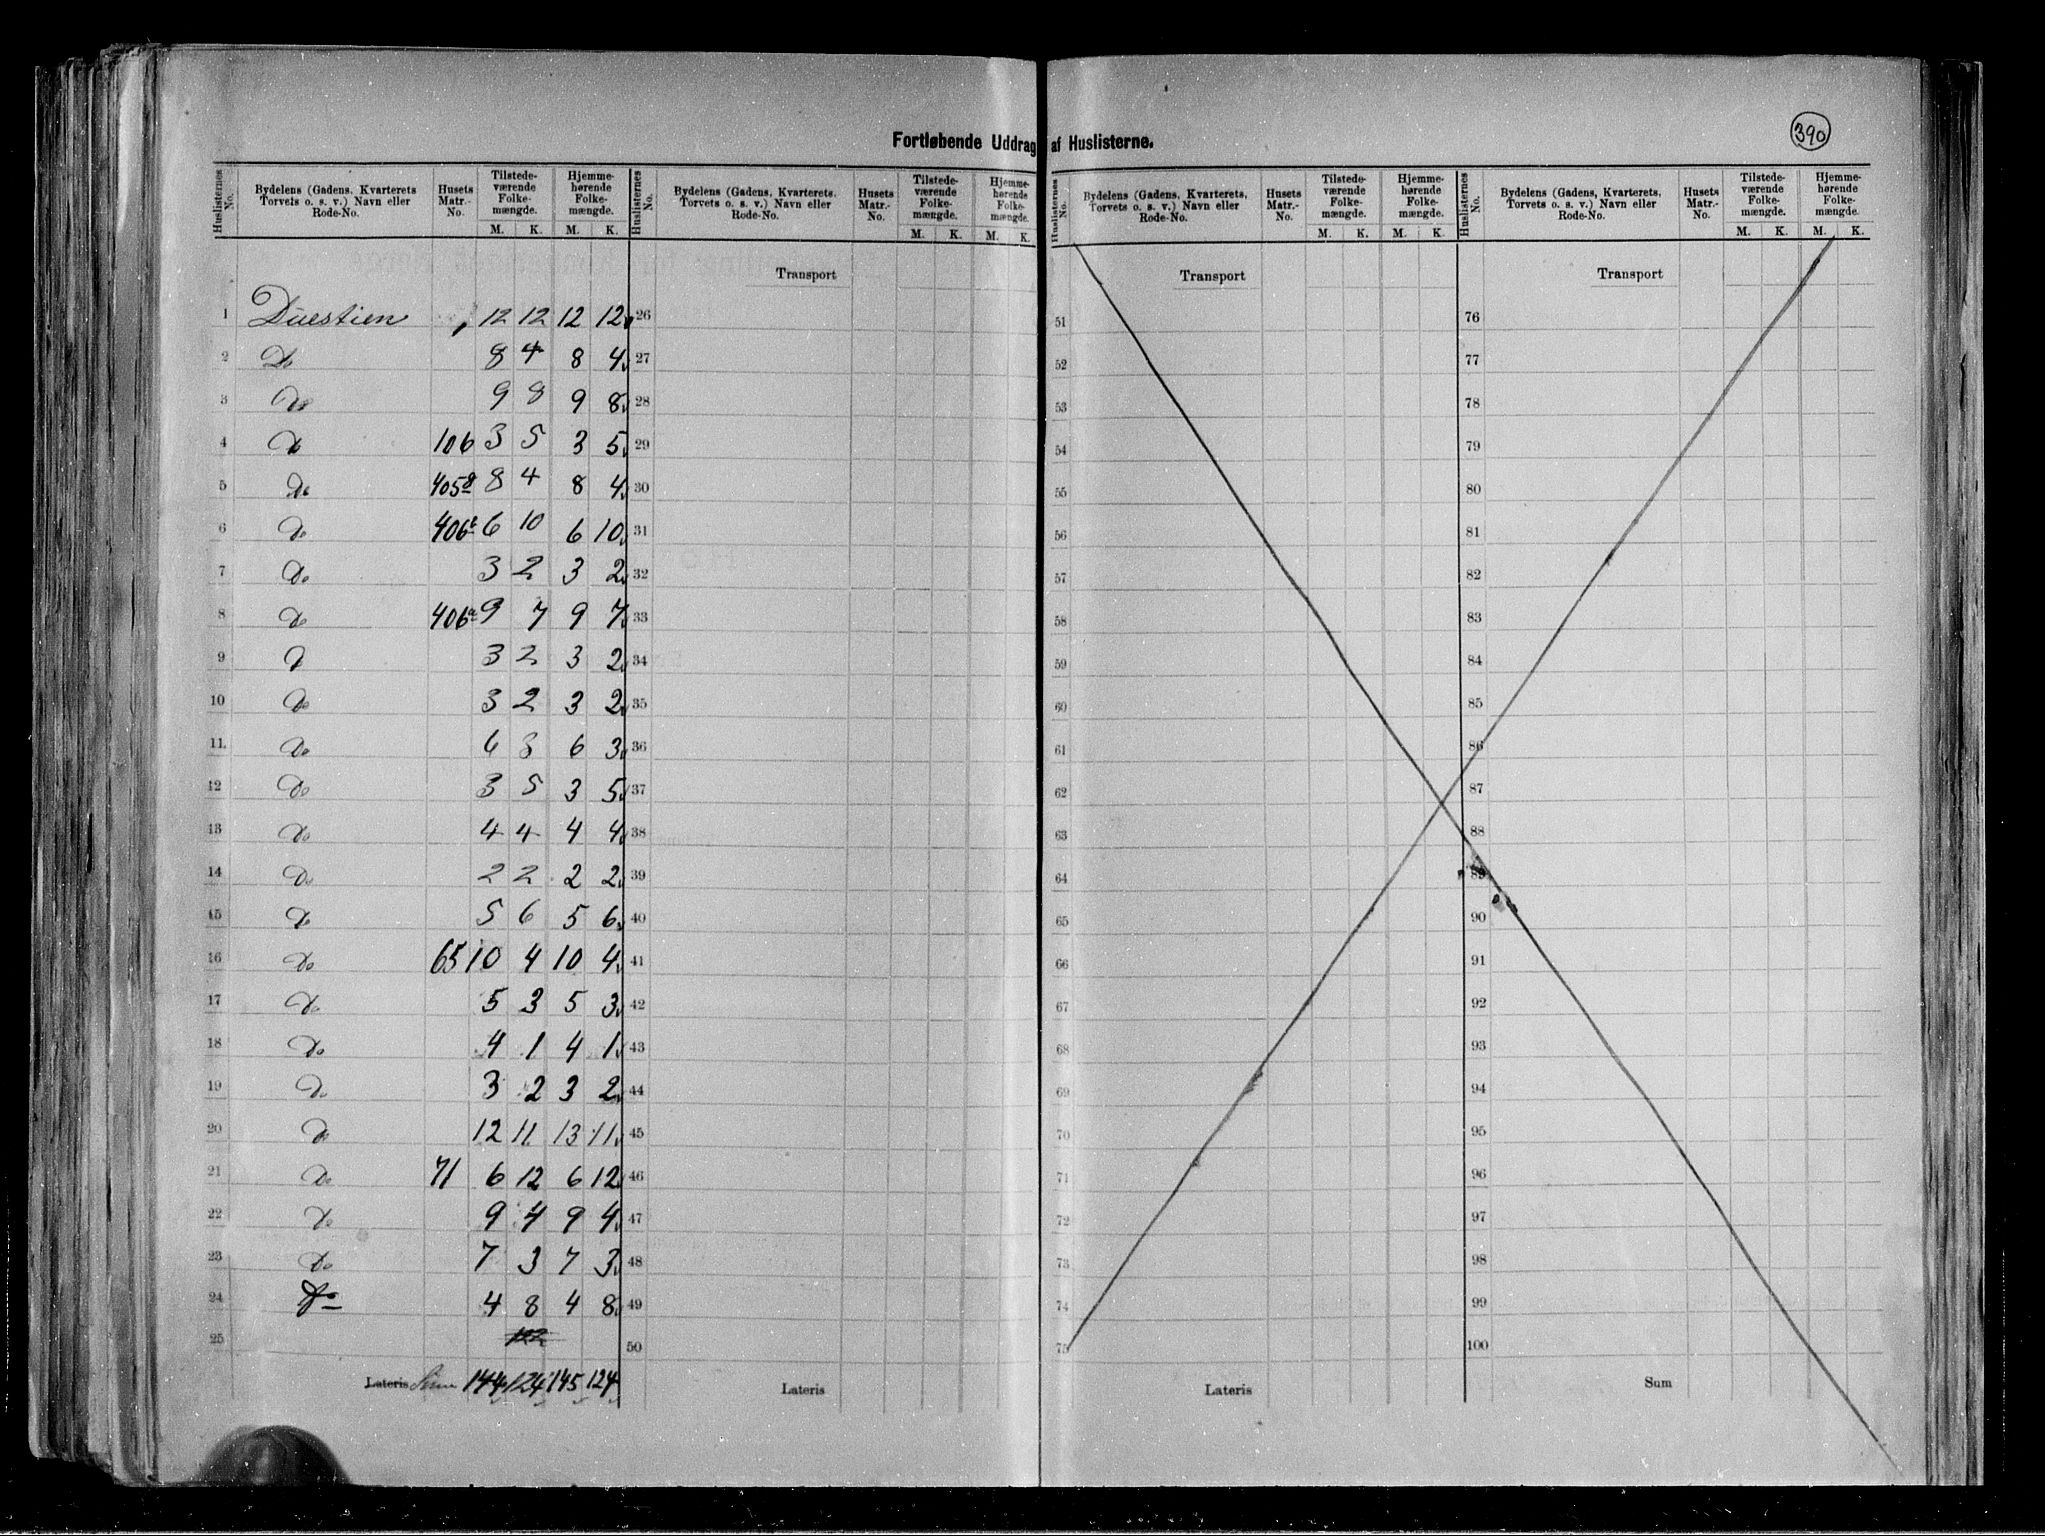 Fortløbende Uddrag af Huslisterne.
390
Huslisternes No. Bydelens (Gadens, Kvarterets Torvets o. s. v.) Navn eller Rode-No. Husets Matr.-No. Tilstedeværende Folkemængde. M. K. Hjemmehørende Folkemængde. M. K.
Huslisternes No. Bydelens (Gadens, Kvarterets, Torvets o. s. v.) Navn eller Rode-No. Husets Matr.-No. Tilstedeværende Folkemængde. M. K. Hjemmehørende Folkemængde. M. K.
Huslisternes No. Bydelens (Gadens, Kvarterets, Torvets o. s. v.) Navn eller Rode-No. Husets Matr.-No. Tilstedeværende Folkemængde. M. K. Hjemmehørende Folkemængde. M. K.
Huslisternes No. Bydelens (Gadens, Kvarterets, Torvets o. s. v.) Navn eller Rode-No. Husets Matr.-No. Tilstedeværende Folkemængde. M. K. Hjemmehørende Folkemængde. M. K.
Transport Transport Transport
1 Duestien 12 12 12 12 26 51 76
2 Do 8 4 8 4 27 52 77
3 Do 9 8 9 8 28 53 78
4 Do 106 3 5 3 5 29 54 79
5 Do 405 8 4 8 4 30 55 80
6 Do 406b 6 10 6 10 31 56 81
7 Do 3 2 3 2 32 57 82
8 Do 406a 9 7 9 7 33 58 83
9 Do 3 2 3 2 34 59 84
10 Do 3 2 3 2 35 60 85
11. Do 6 3 6 3 36 61 86
12 Do 3 5 3 5 37 62 87
13 Do 4 4 4 4 38 63 88
14 Do 2 2 2 2 39 64 89
15 Do 5 6 5 6 40 65 90
16 Do 65 10 4 10 4 41 66 91
17 Do 5 3 5 3 42 67 92
18 Do 4 1 4 1 43 68 93
19 Do 3 2 3 2 44 69 94
20 Do 12 11 13 11 45 70 95
21 Do 71 6 12 6 12 46 71 96
22 Do 9 4 9 4 47 72 97
23 Do 7 3 7 3 48 73 98
24 Do 4 8 4 8 49 74 99
25 50 75 100
Lateris Sum 144 124 145 124 Lateris Lateris Sum